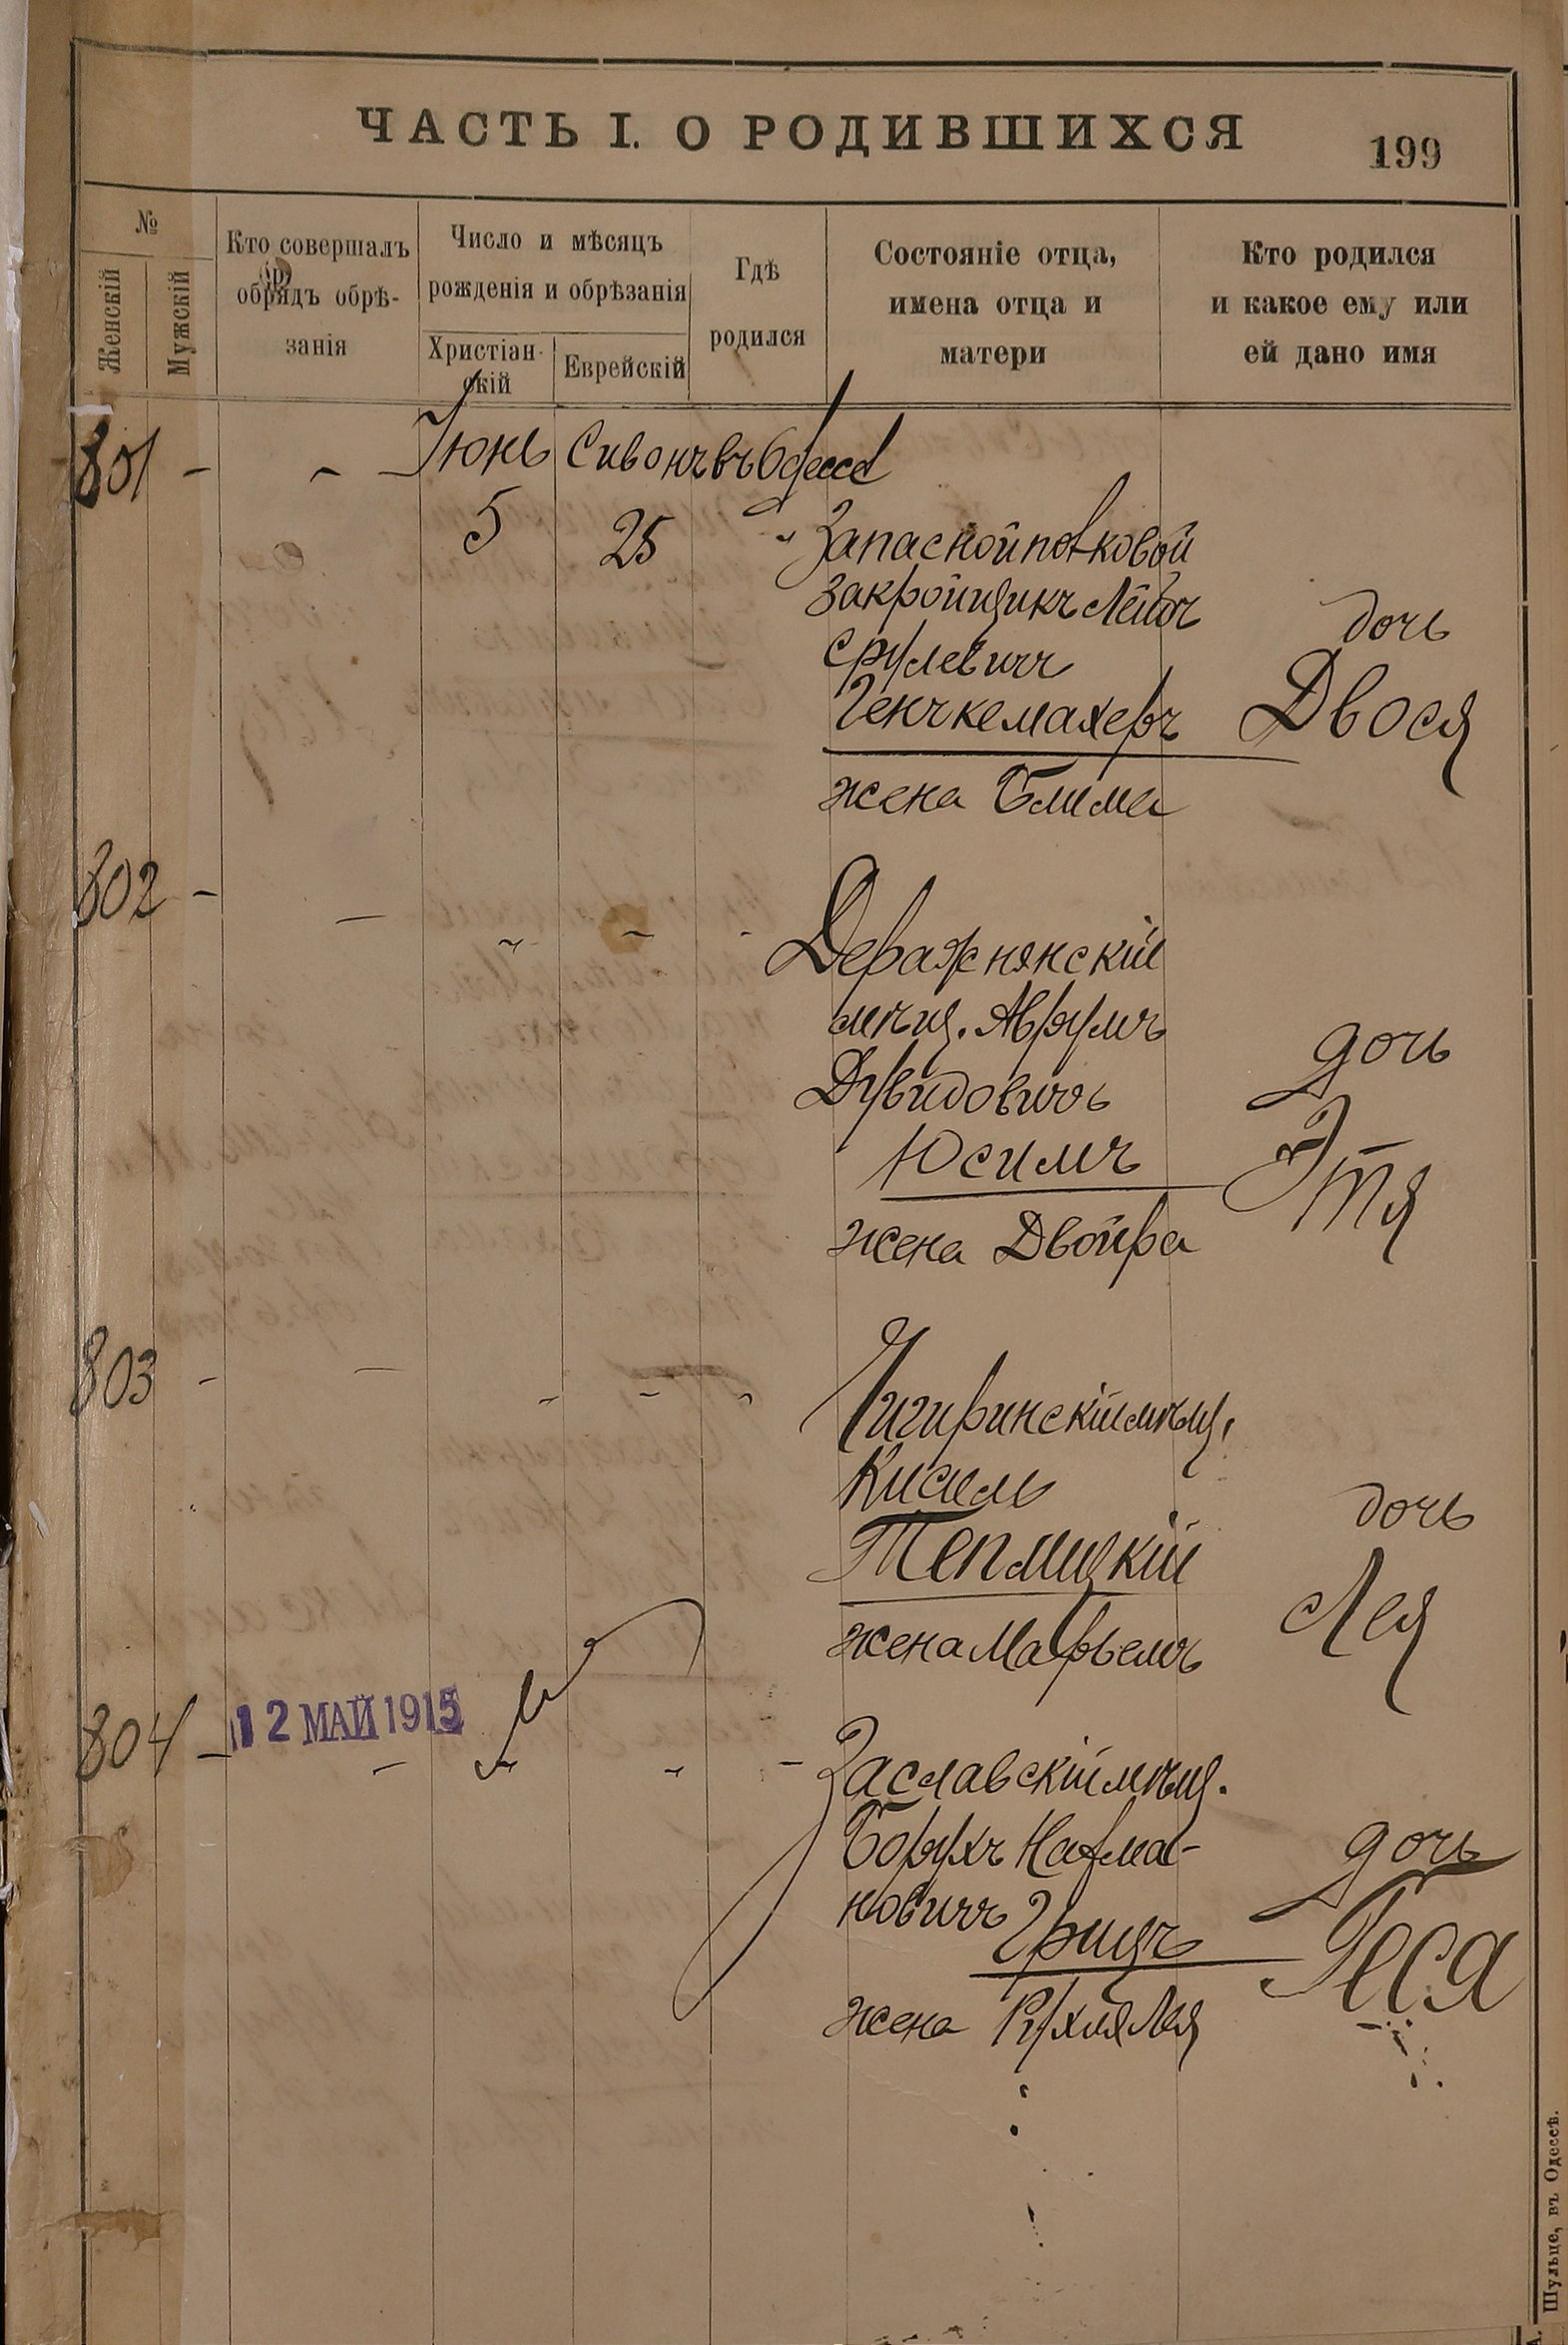 ЧАСТЬ I. О РОДИВШИХСЯ
199
№
Женскій
Мужскій
Кто совершалъ
обрядъ обрѣ-
занія
Число и мѣсяцъ
рожденія и обрѣзанія
Христіан-
скій
Еврейскій
Гдѣ
родился
Состояніе отца,
имена отца и
матери
Кто родился
и какое ему или
ей дано имя
801 - - Іюнь Сивонъ въ Одессѣ
5 25 " Запасной полковой
закройщикъ Лейбъ
Срулевичъ
Генчкемахеръ
жена Блима
дочь
Двося
802 - - " " "
Деражнянскій
мѣщ. Аврумъ
Дувидовичъ
Юсимъ
жена Двойра
дочь
Этя
803 - - " " "
Чигиринскій мѣщ.
Кисель
Теплицкій
жена Марьемъ
дочь
Лея
804 - 12 МАЙ 1915 - " " -
Заславскій мѣщ.
Борухъ Нахма-
новичъ Грицъ
жена Рухля Лея
дочь
Геся
Шульце, въ Одессѣ.